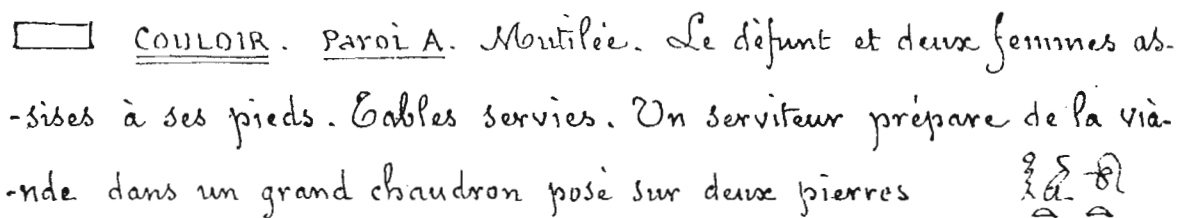 COULOIR. Paroi A. Mutilée. Le défunt et deux femmes as-
-sises à ses pieds. Tables servies. Un serviteur prépare de la via-
-nde dans un grand chaudron posé sur deux pierres